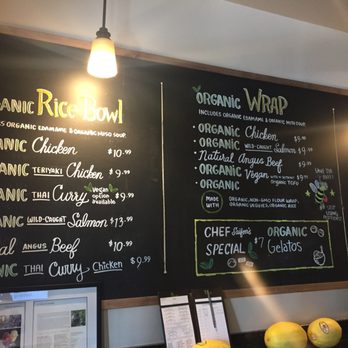 ANIC Rice Bowl
ES ORGANIC EDAMAME & ORGANIC MISO SOUP
ANIC Chicken $10.99
ANIC TERIYAKI Chicken $9.99
ANIC THAI Curry Vegan option available $9.99
ANIC WILD-CAUGHT Salmon $13.99
AL ANGUS Beef $10.99
ANIC THAI Curry Chicken $9.99
ORGANIC WRAP
INCLUDES ORGANIC EDAMAME & ORGANIC MISO SOUP
• ORGANIC Chicken $9.99
• ORGANIC WILD-CAUGHT Salmon $9.99
Natural Angus Beef $9.99
• ORGANIC Vegan $9.99
• ORGANIC ORGANIC TOFU
MADE WITH
ORGANIC, NON-GMO FLOUR WRAP,
ORGANIC VEGGIES, ORGANIC RICE
CHEF ORGANIC
SPECIAL $7 Gelatos